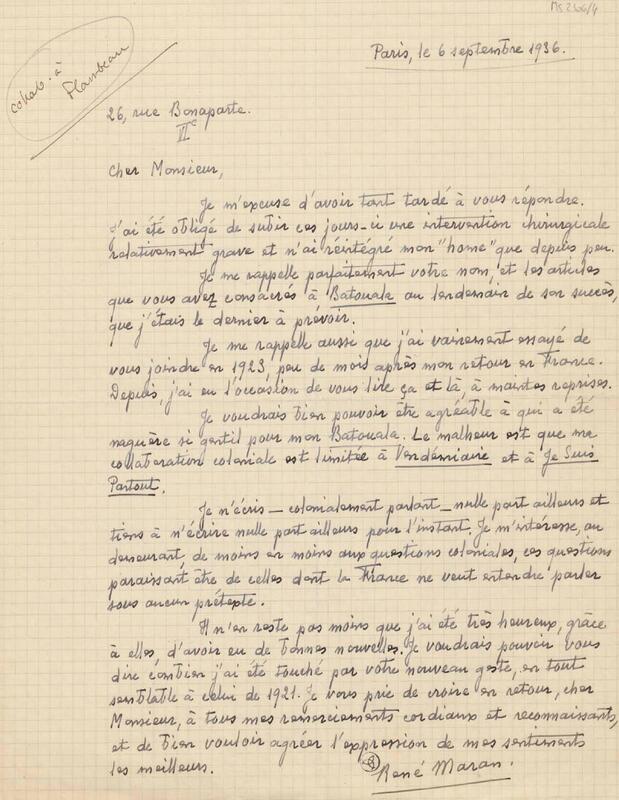 Ms 2406/4
Paris, le 6 septembre 1936.
collab. à
Flambeau
26, rue Bonaparte.
II e
Cher Monsieur,
Je m'excuse d'avoir tant tardé à vous répondre.
J'ai été obligé de subir ces jours-ci une intervention chirurgicale
relativement grave et n'ai réintégré mon "home" que depuis peu.
Je me rappelle parfaitement votre nom, et les articles
que vous avez consacrés à Batouala au lendemain de son succès,
que j'étais le dernier à prévoir.
Je me rappelle aussi que j'ai vainement essayé de
vous joindre en 1923, peu de mois après mon retour en France.
Depuis, j'ai eu l'occasion de vous lire ça et là à maintes reprises.
Je voudrais bien pouvoir être agréable à qui a été
naguère si gentil pour mon Batouala. Le malheur est que ma
collaboration coloniale est limitée à Vendémiaire et à Je Suis
Partout.
Je n'écris – colonialement parlant – nulle part ailleurs et
tiens à n'écrire nulle part ailleurs pour l'instant. Je m'intéresse, au
demeurant, de moins en moins aux questions coloniales, ces questions
paraissant être de celles dont la France ne veut entendre parler
sous aucun prétexte.
Il n'en reste pas moins que j'ai été très heureux, grâce
à elles, d'avoir eu de bonnes nouvelles. Je voudrais pouvoir vous
dire combien j'ai été touché par votre nouveau geste, en tout
semblable à celui de 1921. Je vous prie de croire en retour, cher
Monsieur, à tous mes remerciements cordiaux et reconnaissants,
et de bien vouloir agréer l'expression de mes sentiments
les meilleurs.
René Maran.